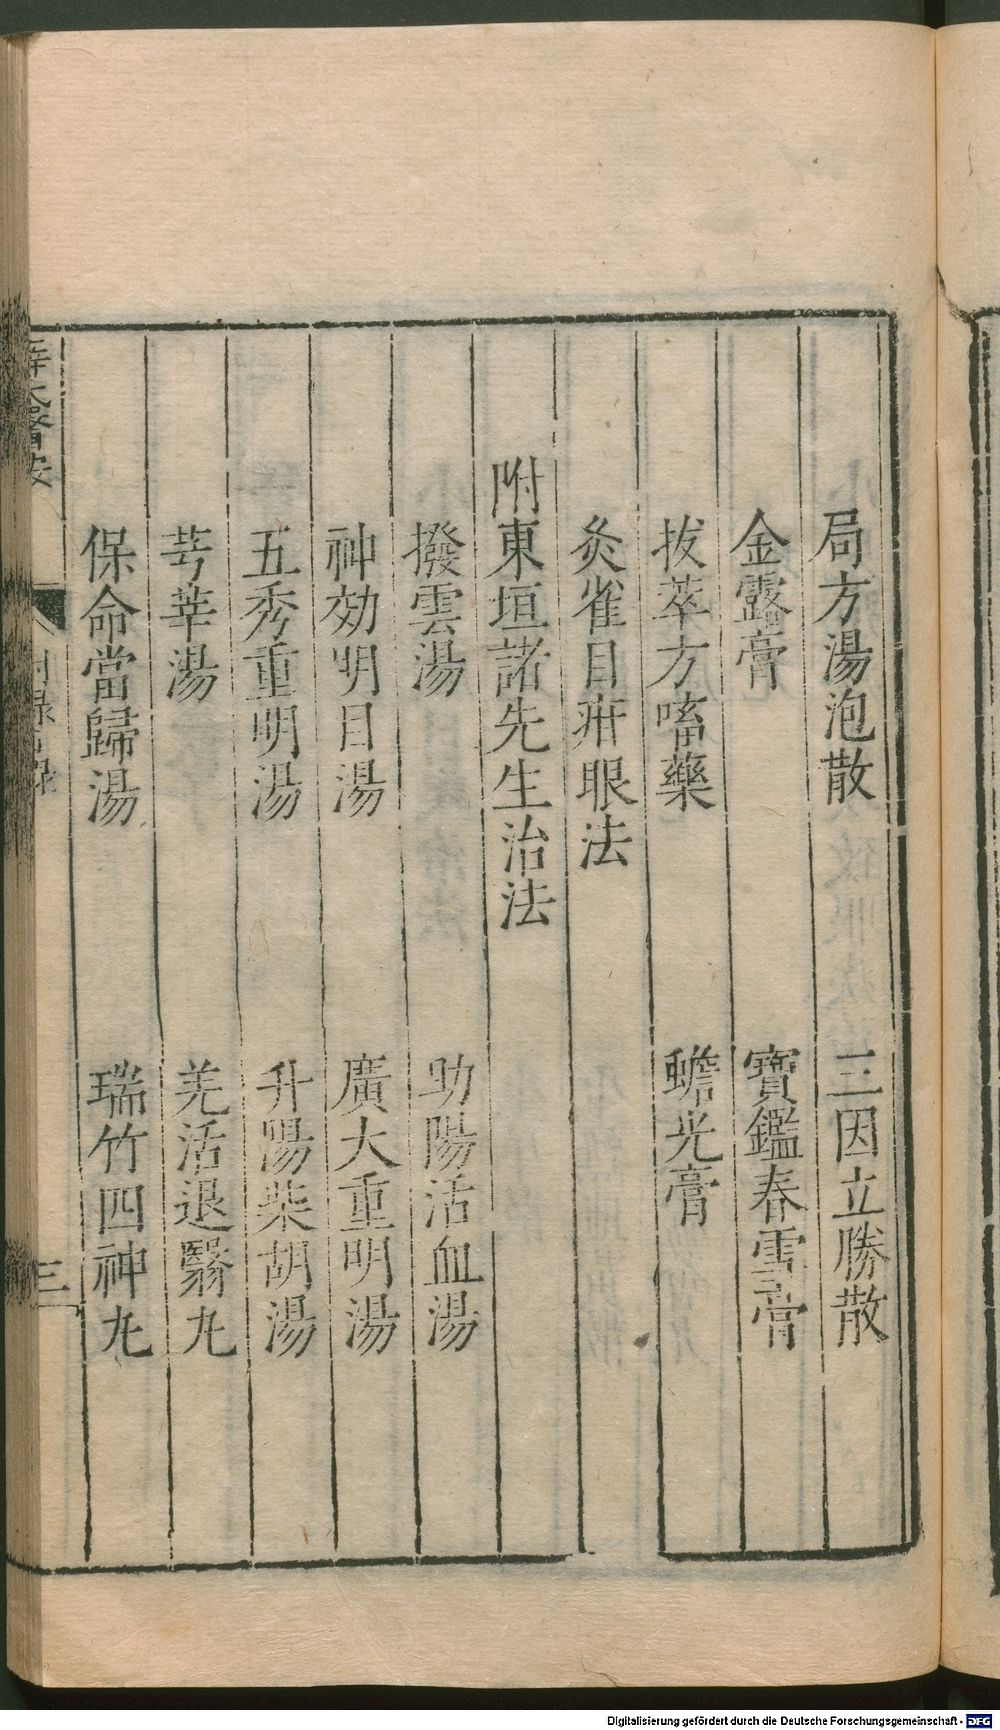 局方湯泡散　三因立勝散
金露膏　寶鑑春雪膏
拔萃方㗜藥　蟾光膏
灸雀目疳眼法
附東垣諸先生治法
撥雲湯　助陽活血湯
神効明目湯　廣大重明湯
五秀重明湯　升陽柴胡湯
芎莘湯　羌活退翳丸
保命當歸湯　瑞竹四神丸
醫按
三
Digitalisierung gefördert durch die Deutsche Forschungsgemeinschaft - DFG